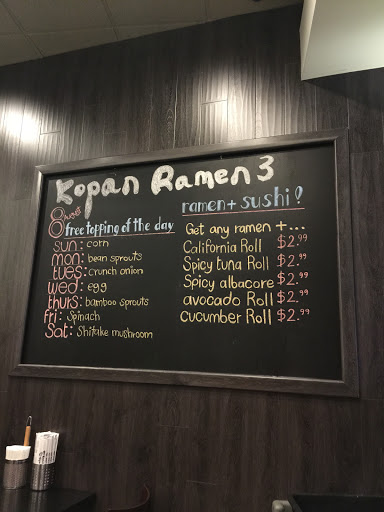 Kopan Ramen 3
free topping of the day
sun: corn
mon: bean sprouts
tues: crunch onion
wed: egg
thurs: bamboo sprouts
fri: Spinach
Sat: Shitake mushroom
ramen + sushi!
Get any ramen +...
California Roll $2.99
Spicy tuna Roll $2.99
Spicy albacore $2.99
avocado Roll $2.99
cucumber Roll $2.99